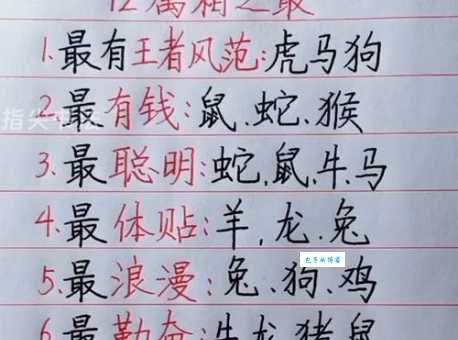 12属相之最
1.最有王者风范:虎马狗
2.最有钱:鼠、蛇、猴
指尖中
3.最聪明:蛇,鼠,牛、马
4.最体贴:羊,龙、兔
5.最浪漫:兔、狗、鸡
6.最勤奋:牛龙猪鼠